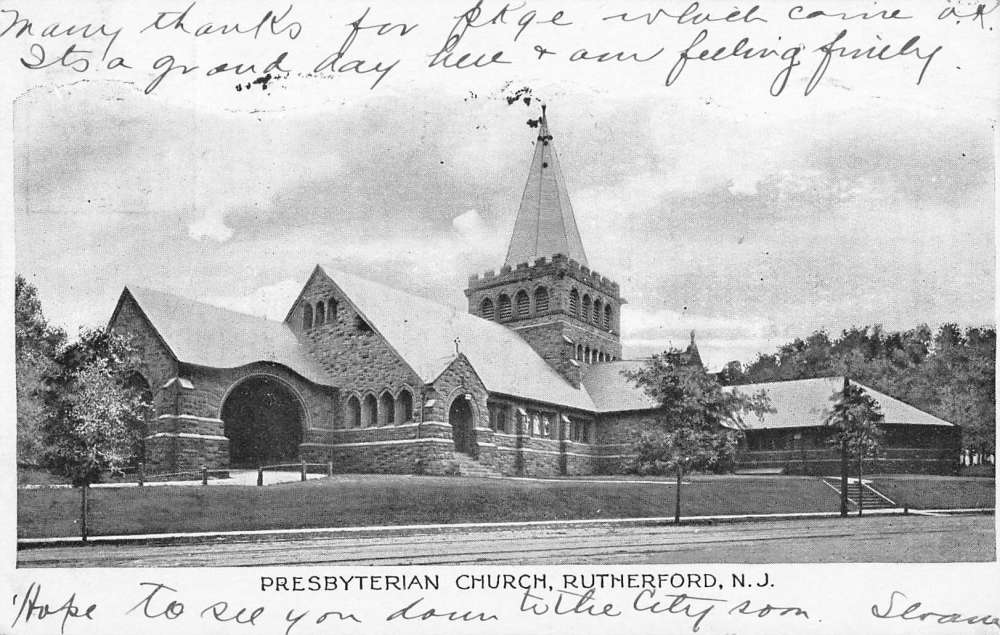 Many thanks for pkge which came O.K.
Its a grand day here + am feeling finely
PRESBYTERIAN CHURCH, RUTHERFORD, N.J.
Hope to see you down to the City soon. Sloane